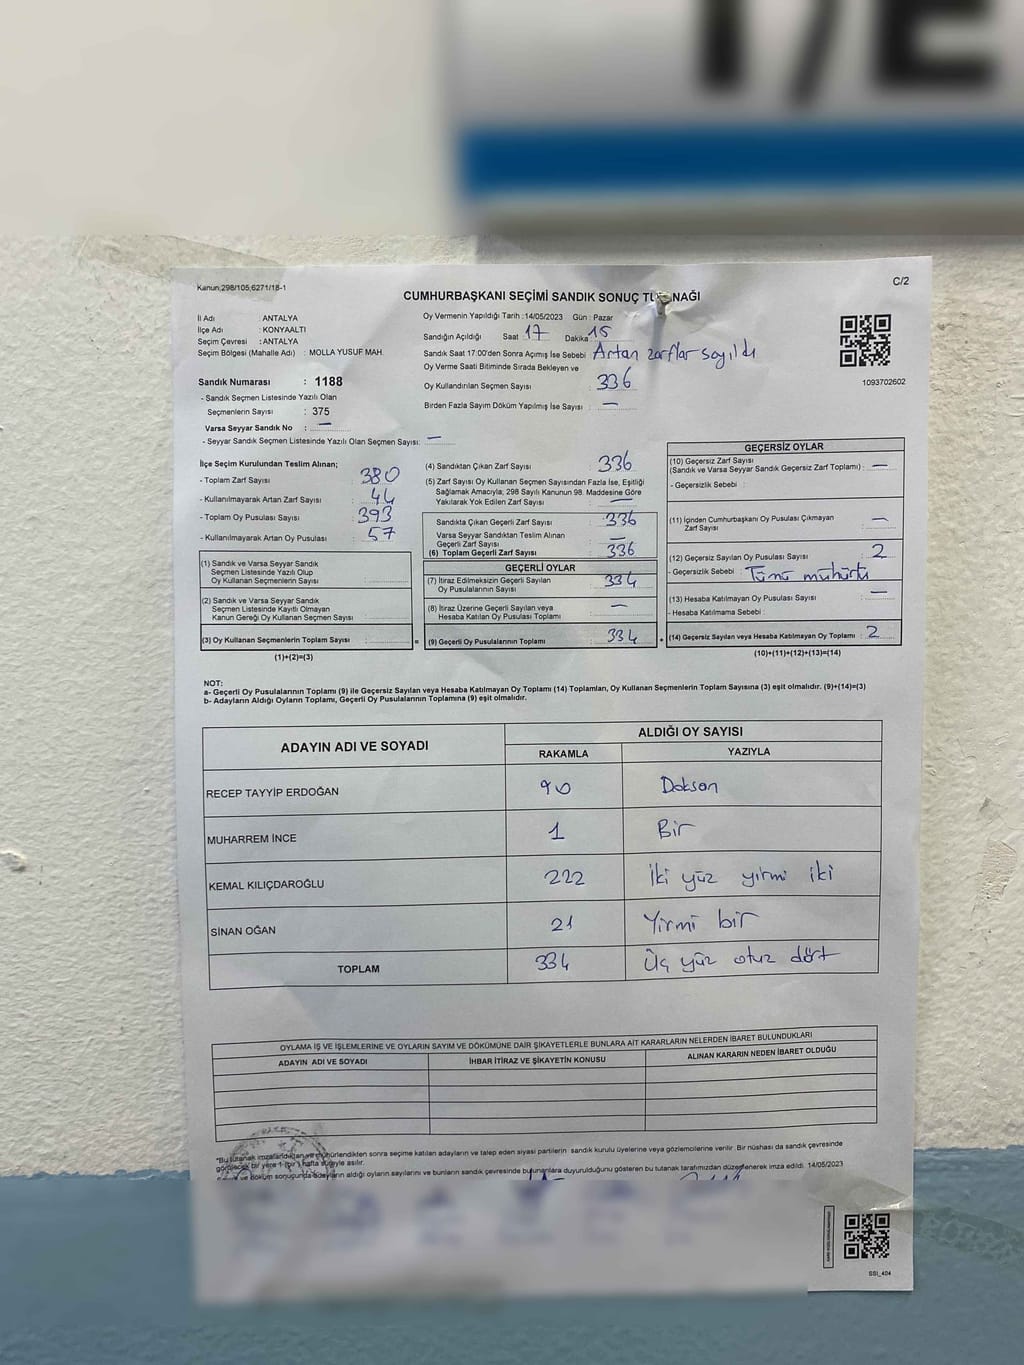 Kanun,298/105,6271/18-1
C/2
CUMHURBAŞKANI SEÇİMİ SANDIK SONUÇ TUTANAĞI
İl Adı : ANTALYA
İlçe Adı : KONYAALTI
Seçim Çevresi : ANTALYA
Seçim Bölgesi (Mahalle Adı) : MOLLA YUSUF MAH.
Sandık Numarası : 1188
- Sandık Seçmen Listesinde Yazılı Olan
Seçmenlerin Sayısı : 375
Varsa Seyyar Sandık No : —
- Seyyar Sandık Seçmen Listesinde Yazılı Olan Seçmen Sayısı: —
Oy Vermenin Yapıldığı Tarih :14/05/2023 Gün : Pazar
Sandığın Açıldığı Saat 17 Dakika 15
Sandık Saat 17:00'den Sonra Açımış İse Sebebi Artan zarflar sayıldı
Oy Verme Saati Bitiminde Sırada Bekleyen ve
Oy Kullandırılan Seçmen Sayısı 336
Birden Fazla Sayım Döküm Yapılmış İse Sayısı : —
1093702602
İlçe Seçim Kurulundan Teslim Alınan;
- Toplam Zarf Sayısı : 380
- Kullanılmayarak Artan Zarf Sayısı : 44
- Toplam Oy Pusulası Sayısı : 393
- Kullanılmayarak Artan Oy Pusulası : 57
(1) Sandık ve Varsa Seyyar Sandık
Seçmen Listesinde Yazılı Olup
Oy Kullanan Seçmenlerin Sayısı :
(2) Sandık ve Varsa Seyyar Sandık
Seçmen Listesinde Kayıtlı Olmayan
Kanun Gereği Oy Kullanan Seçmen Sayısı :
(3) Oy Kullanan Seçmenlerin Toplam Sayısı :
(1)+(2)=(3)
(4) Sandıktan Çıkan Zarf Sayısı : 336
(5) Zarf Sayısı Oy Kullanan Seçmen Sayısından Fazla İse, Eşitliği
Sağlamak Amacıyla; 298 Sayılı Kanunun 98. Maddesine Göre
Yakılarak Yok Edilen Zarf Sayısı : —
Sandıkta Çıkan Geçerli Zarf Sayısı : 336
Varsa Seyyar Sandıktan Teslim Alınan
Geçerli Zarf Sayısı : —
(6) Toplam Geçerli Zarf Sayısı : 336
GEÇERLİ OYLAR
(7) İtiraz Edilmeksizin Geçerli Sayılan
Oy Pusulalarının Sayısı : 334
(8) İtiraz Üzerine Geçerli Sayılan veya
Hesaba Katılan Oy Pusulası Toplamı : —
= (9) Geçerli Oy Pusulalarının Toplamı : 334
GEÇERSİZ OYLAR
(10) Geçersiz Zarf Sayısı
(Sandık ve Varsa Seyyar Sandık Geçersiz Zarf Toplamı) : —
- Geçersizlik Sebebi :
(11) İçinden Cumhurbaşkanı Oy Pusulası Çıkmayan
Zarf Sayısı : —
(12) Geçersiz Sayılan Oy Pusulası Sayısı : 2
- Geçersizlik Sebebi : Tümü mühürlü
(13) Hesaba Katılmayan Oy Pusulası Sayısı : —
- Hesaba Katılmama Sebebi :
+ (14) Geçersiz Sayılan veya Hesaba Katılmayan Oy Toplamı : 2
(10)+(11)+(12)+(13)=(14)
NOT:
a- Geçerli Oy Pusulalarının Toplamı (9) ile Geçersiz Sayılan veya Hesaba Katılmayan Oy Toplamı (14) Toplamları, Oy Kullanan Seçmenlerin Toplam Sayısına (3) eşit olmalıdır. (9)+(14)=(3)
b- Adayların Aldığı Oyların Toplamı, Geçerli Oy Pusulalarının Toplamına (9) eşit olmalıdır.
ADAYIN ADI VE SOYADI ALDIĞI OY SAYISI
RAKAMLA YAZIYLA
RECEP TAYYİP ERDOĞAN 90 Doksan
MUHARREM İNCE 1 Bir
KEMAL KILIÇDAROĞLU 222 İki yüz yirmi iki
SİNAN OĞAN 21 Yirmi bir
TOPLAM 334 Üç yüz otuz dört
OYLAMA İŞ VE İŞLEMLERİNE VE OYLARIN SAYIM VE DÖKÜMÜNE DAİR ŞİKAYETLERLE BUNLARA AİT KARARLARIN NELERDEN İBARET BULUNDUKLARI
ADAYIN ADI VE SOYADI İHBAR İTİRAZ VE ŞİKAYETİN KONUSU ALINAN KARARIN NEDEN İBARET OLDUĞU
*Bu tutanak imzalandıktan ve mühürlendikten sonra seçime katılan adayların ve talep eden siyasi partilerin sandık kurulu üyelerine veya gözlemcilerine verilir. Bir nüshası da sandık çevresinde
görülecek bir yere 1 (bir) hafta süreyle asılır.
ve döküm sonuçunda adayların aldığı oyların sayılarını ve bunların sandık çevresinde bulunanlara duyurulduğunu gösteren bu tutanak tarafımızdan düzenlenerek imza edildi. 14/05/2023
SSİ_404